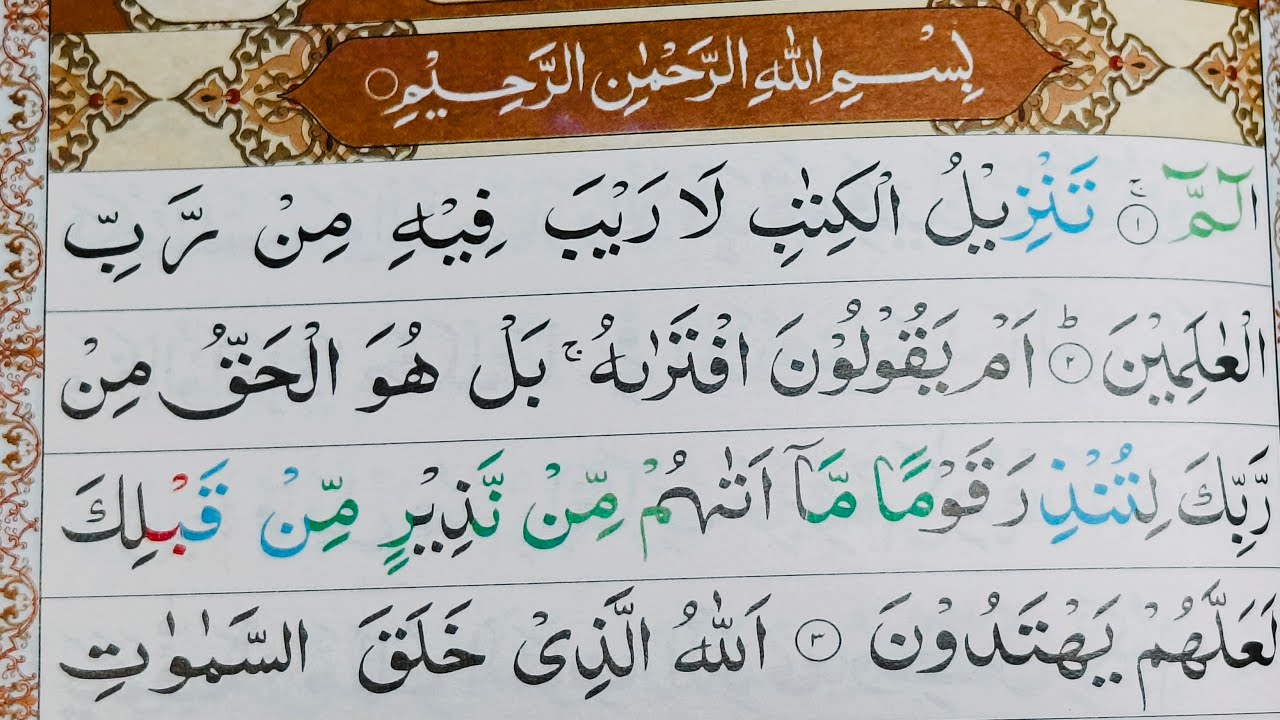 بِسْمِ اللهِ الرَّحْمٰنِ الرَّحِيْمِ ○
الٓمّٓ ۚ ﴿١﴾ تَنْزِيْلُ الْكِتٰبِ لَا رَيْبَ فِيْهِ مِنْ رَّبِّ
الْعٰلَمِيْنَ ؕ ﴿٢﴾ اَمْ يَقُوْلُوْنَ افْتَرٰىهُ ۚ بَلْ هُوَ الْحَقُّ مِنْ
رَّبِّكَ لِتُنْذِرَ قَوْمًا مَّاۤ اَتٰىهُمْ مِّنْ نَّذِيْرٍ مِّنْ قَبْلِكَ
لَعَلَّهُمْ يَهْتَدُوْنَ ﴿٣﴾ اَللهُ الَّذِيْ خَلَقَ السَّمٰوٰتِ